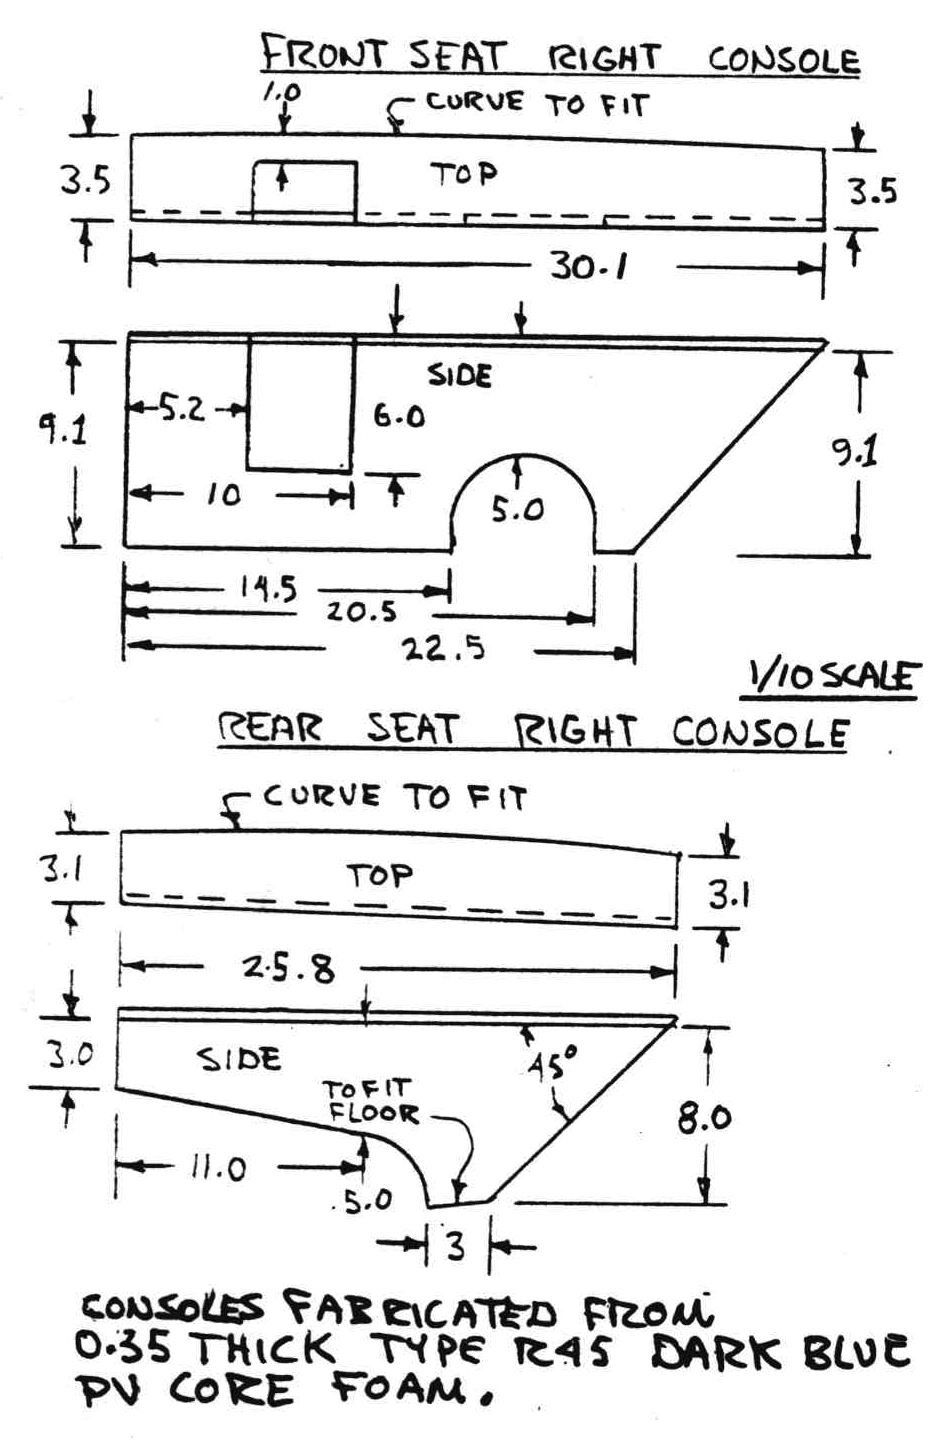 FRONT SEAT RIGHT CONSOLE
1.0
CURVE TO FIT
3.5
TOP
3.5
30.1
SIDE
5.2
6.0
9.1
9.1
10
5.0
14.5
20.5
22.5
1/10 SCALE
REAR SEAT RIGHT CONSOLE
CURVE TO FIT
3.1
TOP
3.1
25.8
3.0
SIDE
45°
TO FIT
FLOOR
8.0
11.0
5.0
3
CONSOLES FABRICATED FROM
0.35 THICK TYPE R45 DARK BLUE
PV CORE FOAM.